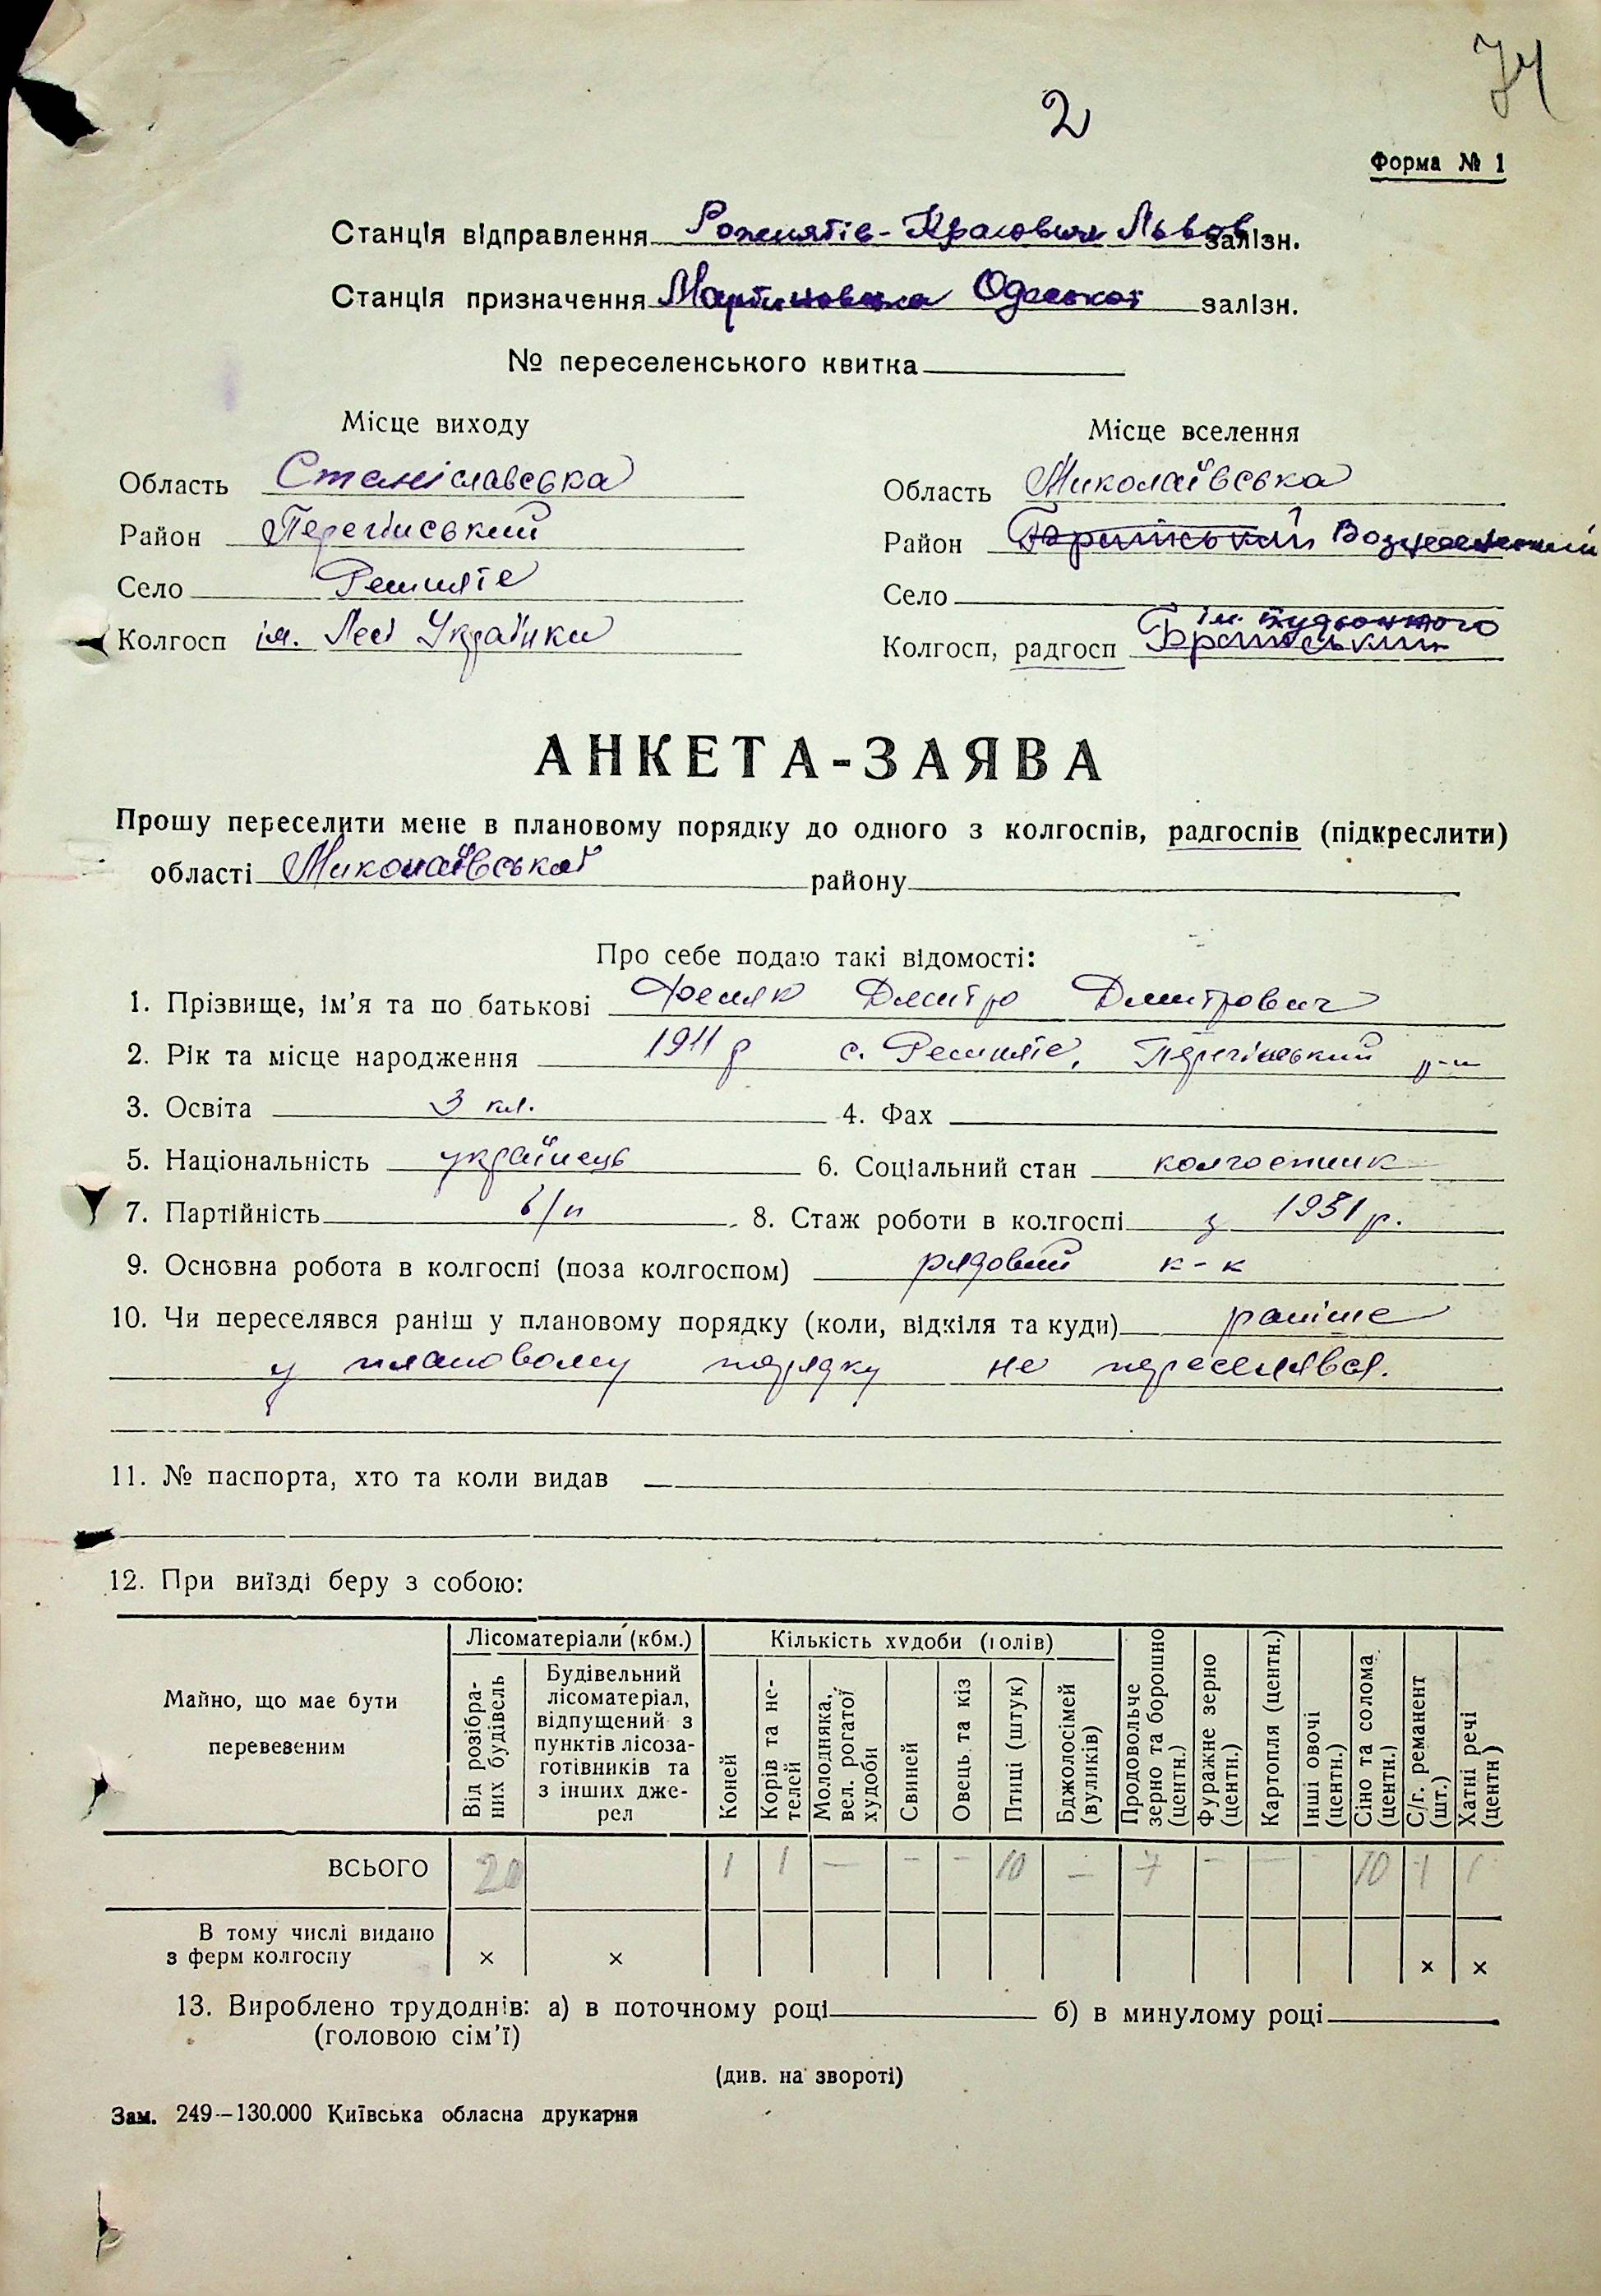 74
2
Форма № 1
Станція відправлення Рожнятів-Красовия Львов залізн.
Станція призначення Мартиновська Одеської залізн.
№ переселенського квитка
Місце виходу
Область Станіславська
Район Перегінський
Село
Колгосп ім. Лесі Українки
Місце вселення
Область Миколаївська
Район Братський Вознесенський
Село
Колгосп, радгосп Братський ім. Будьонного
АНКЕТА-ЗАЯВА
Прошу переселити мене в плановому порядку до одного з колгоспів, радгоспів (підкреслити)
області Миколаївської району
Про себе подаю такі відомості:
1. Прізвище, ім'я та по батькові Дмитро Дмитрович
2. Рік та місце народження 1911 р с. Перегінський р-н
3. Освіта 3 кл. 4. Фах
5. Національність українець 6. Соціальний стан колгоспник
7. Партійність б/п 8. Стаж роботи в колгоспі з 1951 р.
9. Основна робота в колгоспі (поза колгоспом) рядовий к-к
10. Чи переселявся раніш у плановому порядку (коли, відкіля та куди) раніше
у плановому порядку не переселявся.
11. № паспорта, хто та коли видав
12. При виїзді беру з собою:
Майно, що має бути перевезеним
Лісоматеріали (кбм.)
Від розібраних будівель
Будівельний лісоматеріал, відпущений з пунктів лісозаготівників та з інших джерел
Кількість худоби (голів)
Коней
Корів та нетелей
Молодняка, вел. рогатої худоби
Свиней
Овець та кіз
Птиці (штук)
Бджолосімей (вуликів)
Продовольче зерно та борошно (центн.)
Фуражне зерно (центн.)
Картопля (центн.)
Інші овочі (центн.)
Сіно та солома (центн.)
С/г. реманент (шт.)
Хатні речі (центн)
ВСЬОГО 20 1 1 — — — 10 — 7 — — — 10 1 1
В тому числі видано
з ферм колгоспу × × × ×
13. Вироблено трудоднів: а) в поточному році б) в минулому році
(головою сім'ї)
(див. на звороті)
Зам. 249—130.000 Київська обласна друкарня